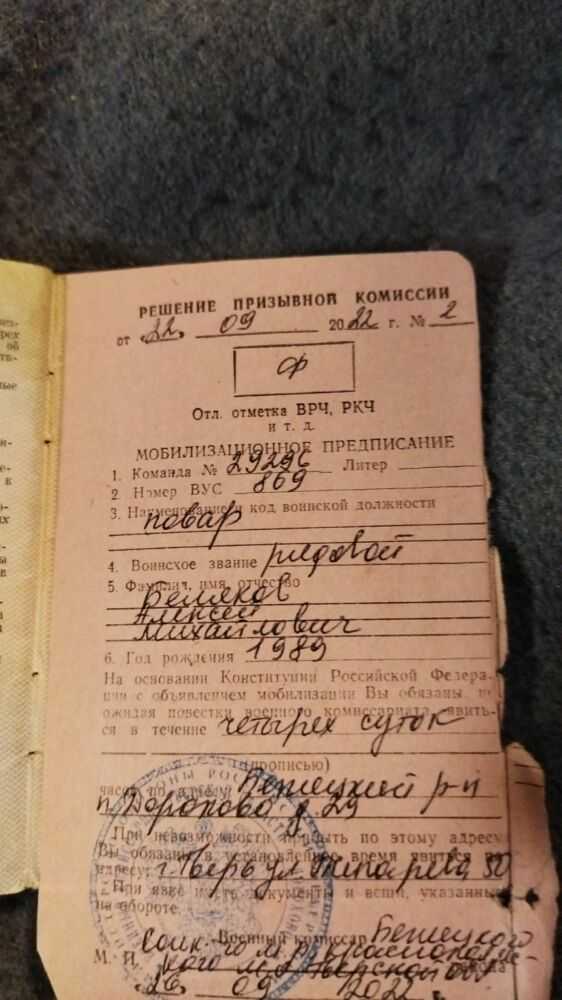 РЕШЕНИЕ ПРИЗЫВНОЙ КОМИССИИ
от 22. 09 2022 г. № 2
Ф
Отл. отметка ВРЧ, РКЧ
и т. д.
МОБИЛИЗАЦИОННОЕ ПРЕДПИСАНИЕ
1. Команда № 29296 Литер
2. Номер ВУС 869
3. Наименование и код воинской должности
повар
4. Воинское звание рядовой
5. Фамилия, имя, отчество
Беляков
Алексей
Михайлович
6. Год рождения 1989
На основании Конституции Российской Федера-
ции с объявлением мобилизации Вы обязаны, не
ожидая повестки военного комиссариата, явить-
ся в течение четырех суток
(прописью)
часов по адресу: Бежецкий р-н
п. Дорохово д 29
При невозможности прибыть по этому адресу
Вы обязаны в установленное время явиться по
адресу: г. Тверь ул. 50
При явке иметь документы и вещи, указанные
на обороте.
Военный комиссар Бежецкого
М. П.
26 09 2022